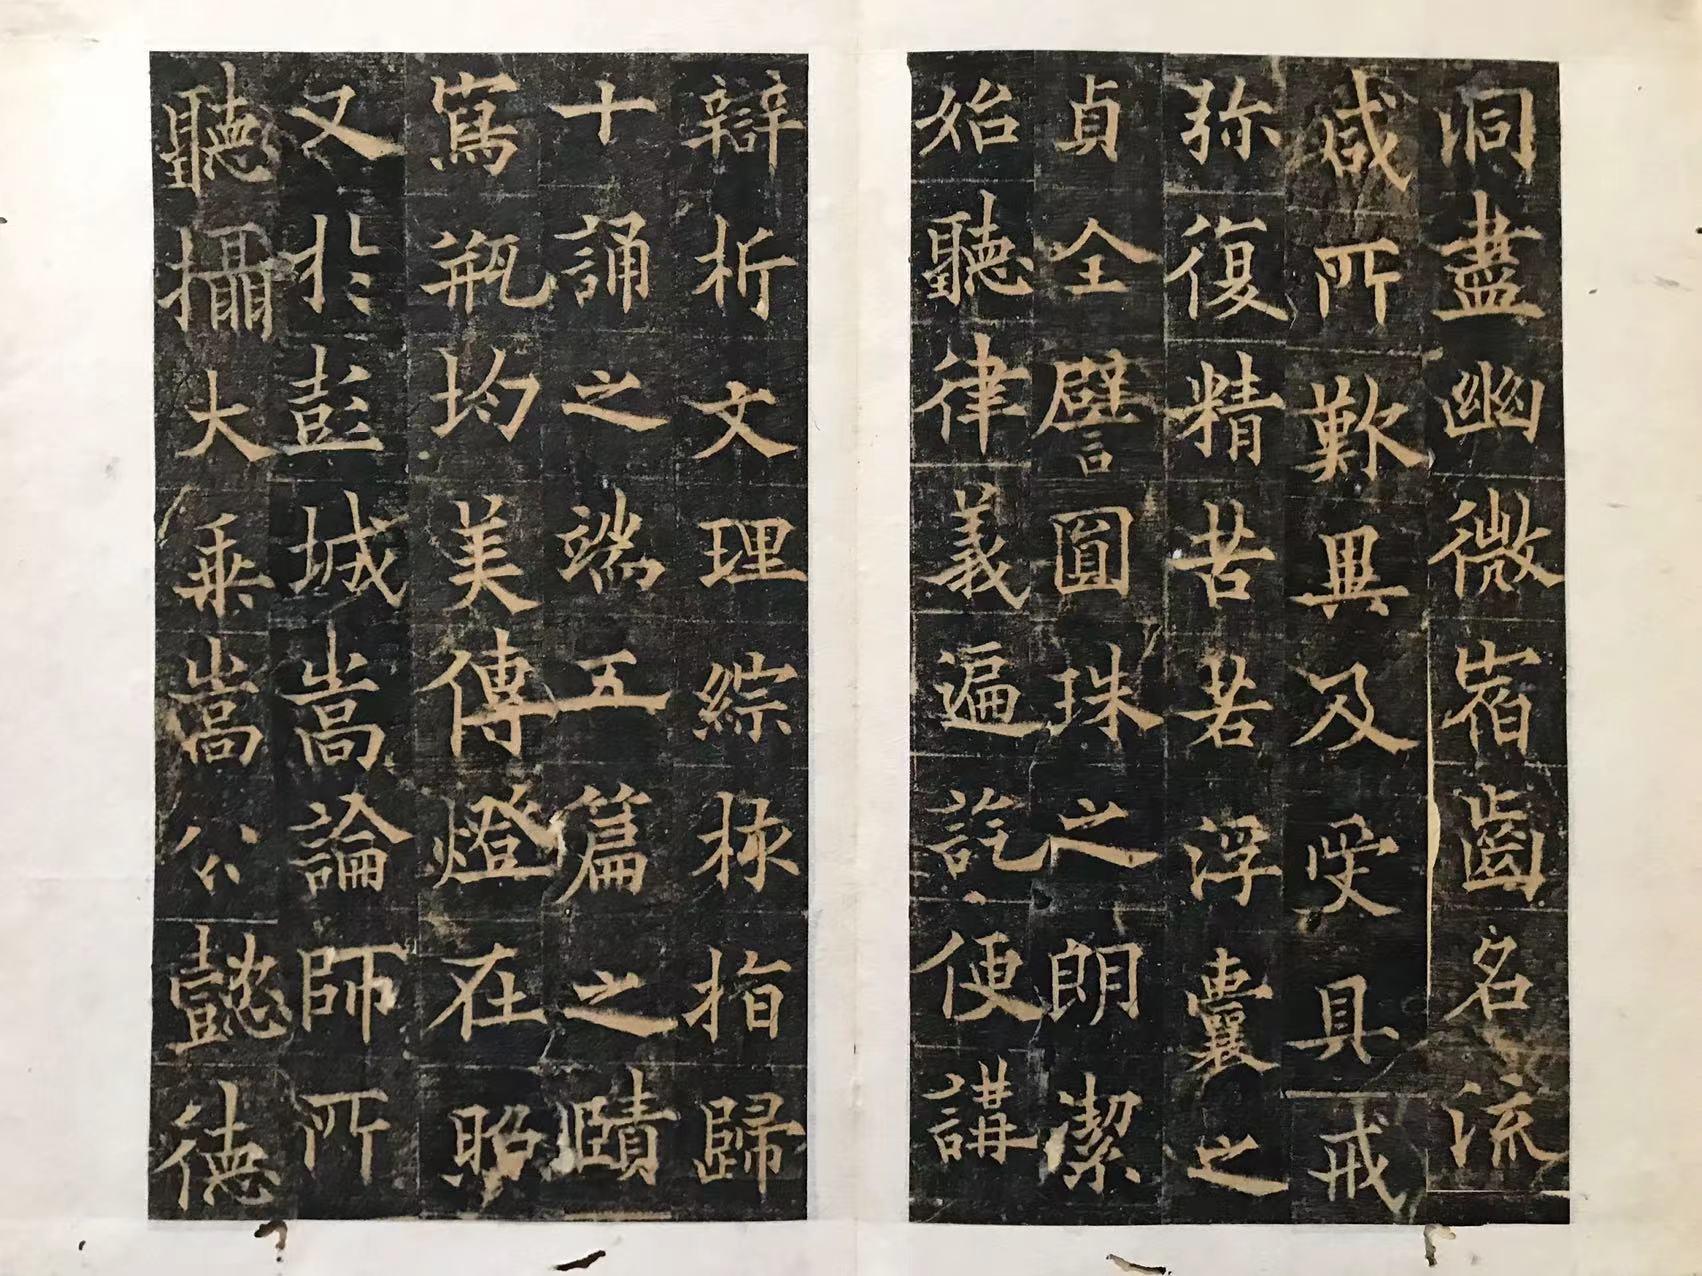 洞盡幽微宿齒名流
咸所歎異及受具戒
弥復精苦若浮囊之
貞全譬圓珠之朗潔
始聽律義遍訖便講
辯析文理綜棌指歸
十誦之端五篇之賾
寫瓶均美傳燈在昭
又於彭城嵩論師所
聽攝大乘嵩公懿德